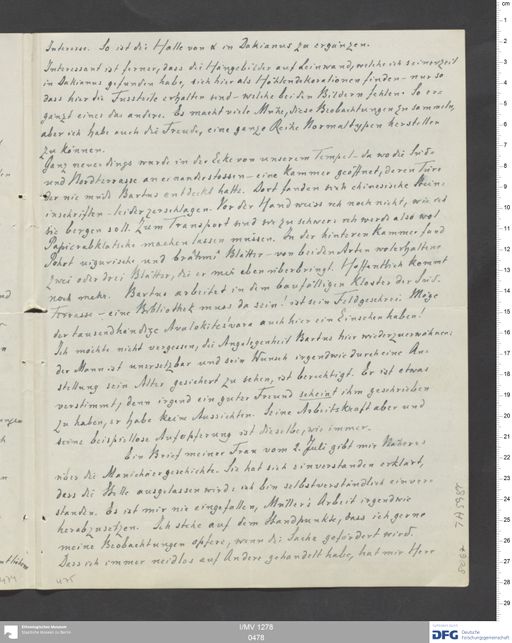 Interesse. So ist die Halle von α in Dakianus zu ergänzen.
Interessant ist ferner, dass die Hängebilder auf Leinwand, welche ich seinerzeit
in Dakianus gefunden habe, sich hier als Höhlendekorationen finden - nur so
dass hier die Fussteile erhalten sind - welche bei den Bildern fehlen. So er-
gänzt eines das andere. Es macht viele Mühe, diese Beobachtungen zu sammeln,
aber ich habe auch die Freude, eine ganze Reihe Normaltypen herstellen
zu können.
Ganz neuerdings wurde in der Ecke von unserem Tempel - da wo die Süd-
und Nordterrasse aneinanderstossen - eine Kammer geöffnet, deren Türe
der nie müde Bartus entdeckt hatte. Dort fanden sich chinesische Stein-
inschriften - leider zerschlagen. Vor der Hand weiss ich noch nicht, wie ich
sie bergen soll. Zum Transport sind sie zu schwer: ich werde also wol
Papierabklatsche machen lassen müssen. In der hinteren Kammer fand
Pohrt uigurische und brāhmī Blätter - von beiden Arten wolerhaltene
zwei oder drei Blätter, die er mir eben rüberbringt. Hoffentlich kommt
noch mehr. Bartus arbeitet in dem baufälligen Kloster der Süd-
Terrasse - eine Bibliothek muss da sein! ist sein Feldgeschrei. Möge
der tausendhändige Avalokiteśvara auch hier ein Einsehen haben!
Ich möchte nicht vergessen, die Angelegenheit Bartus hier wiederzuerwähnen:
der Mann ist unersetzbar und sein Wunsch irgendwie durch eine An-
stellung sein Alter gesichert zu sehen, ist berechtigt. Er ist etwas
verstimmt, denn irgend ein guter Freund scheint ihm geschrieben
zu haben, er habe keine Aussichten. Seine Arbeitskraft aber und
seine beispiellose Aufopferung ist dieselbe, wie immer.
Ein Brief meiner Frau vom 2. Juli gibt mir Näheres
über die Manichäergeschichte. Sie hat sich einverstanden erklärt,
dass die Stelle ausgelassen wird: ich bin selbstverständlich einver-
standen. Es ist mir nie eingefallen, Müller's Arbeit irgendwie
herabzusetzen. Ich stehe auf dem Standpunkte, dass ich gerne
meine Beobachtungen opfere, wenn die Sache gefördert wird.
Dass ich immer neidlos auf Andere gehandelt habe, hat mir Herr
475
I/MV 1278
0478
Ethnologisches Museum
Staatliche Museen zu Berlin
DFG Deutsche
Forschungsgemeinschaft